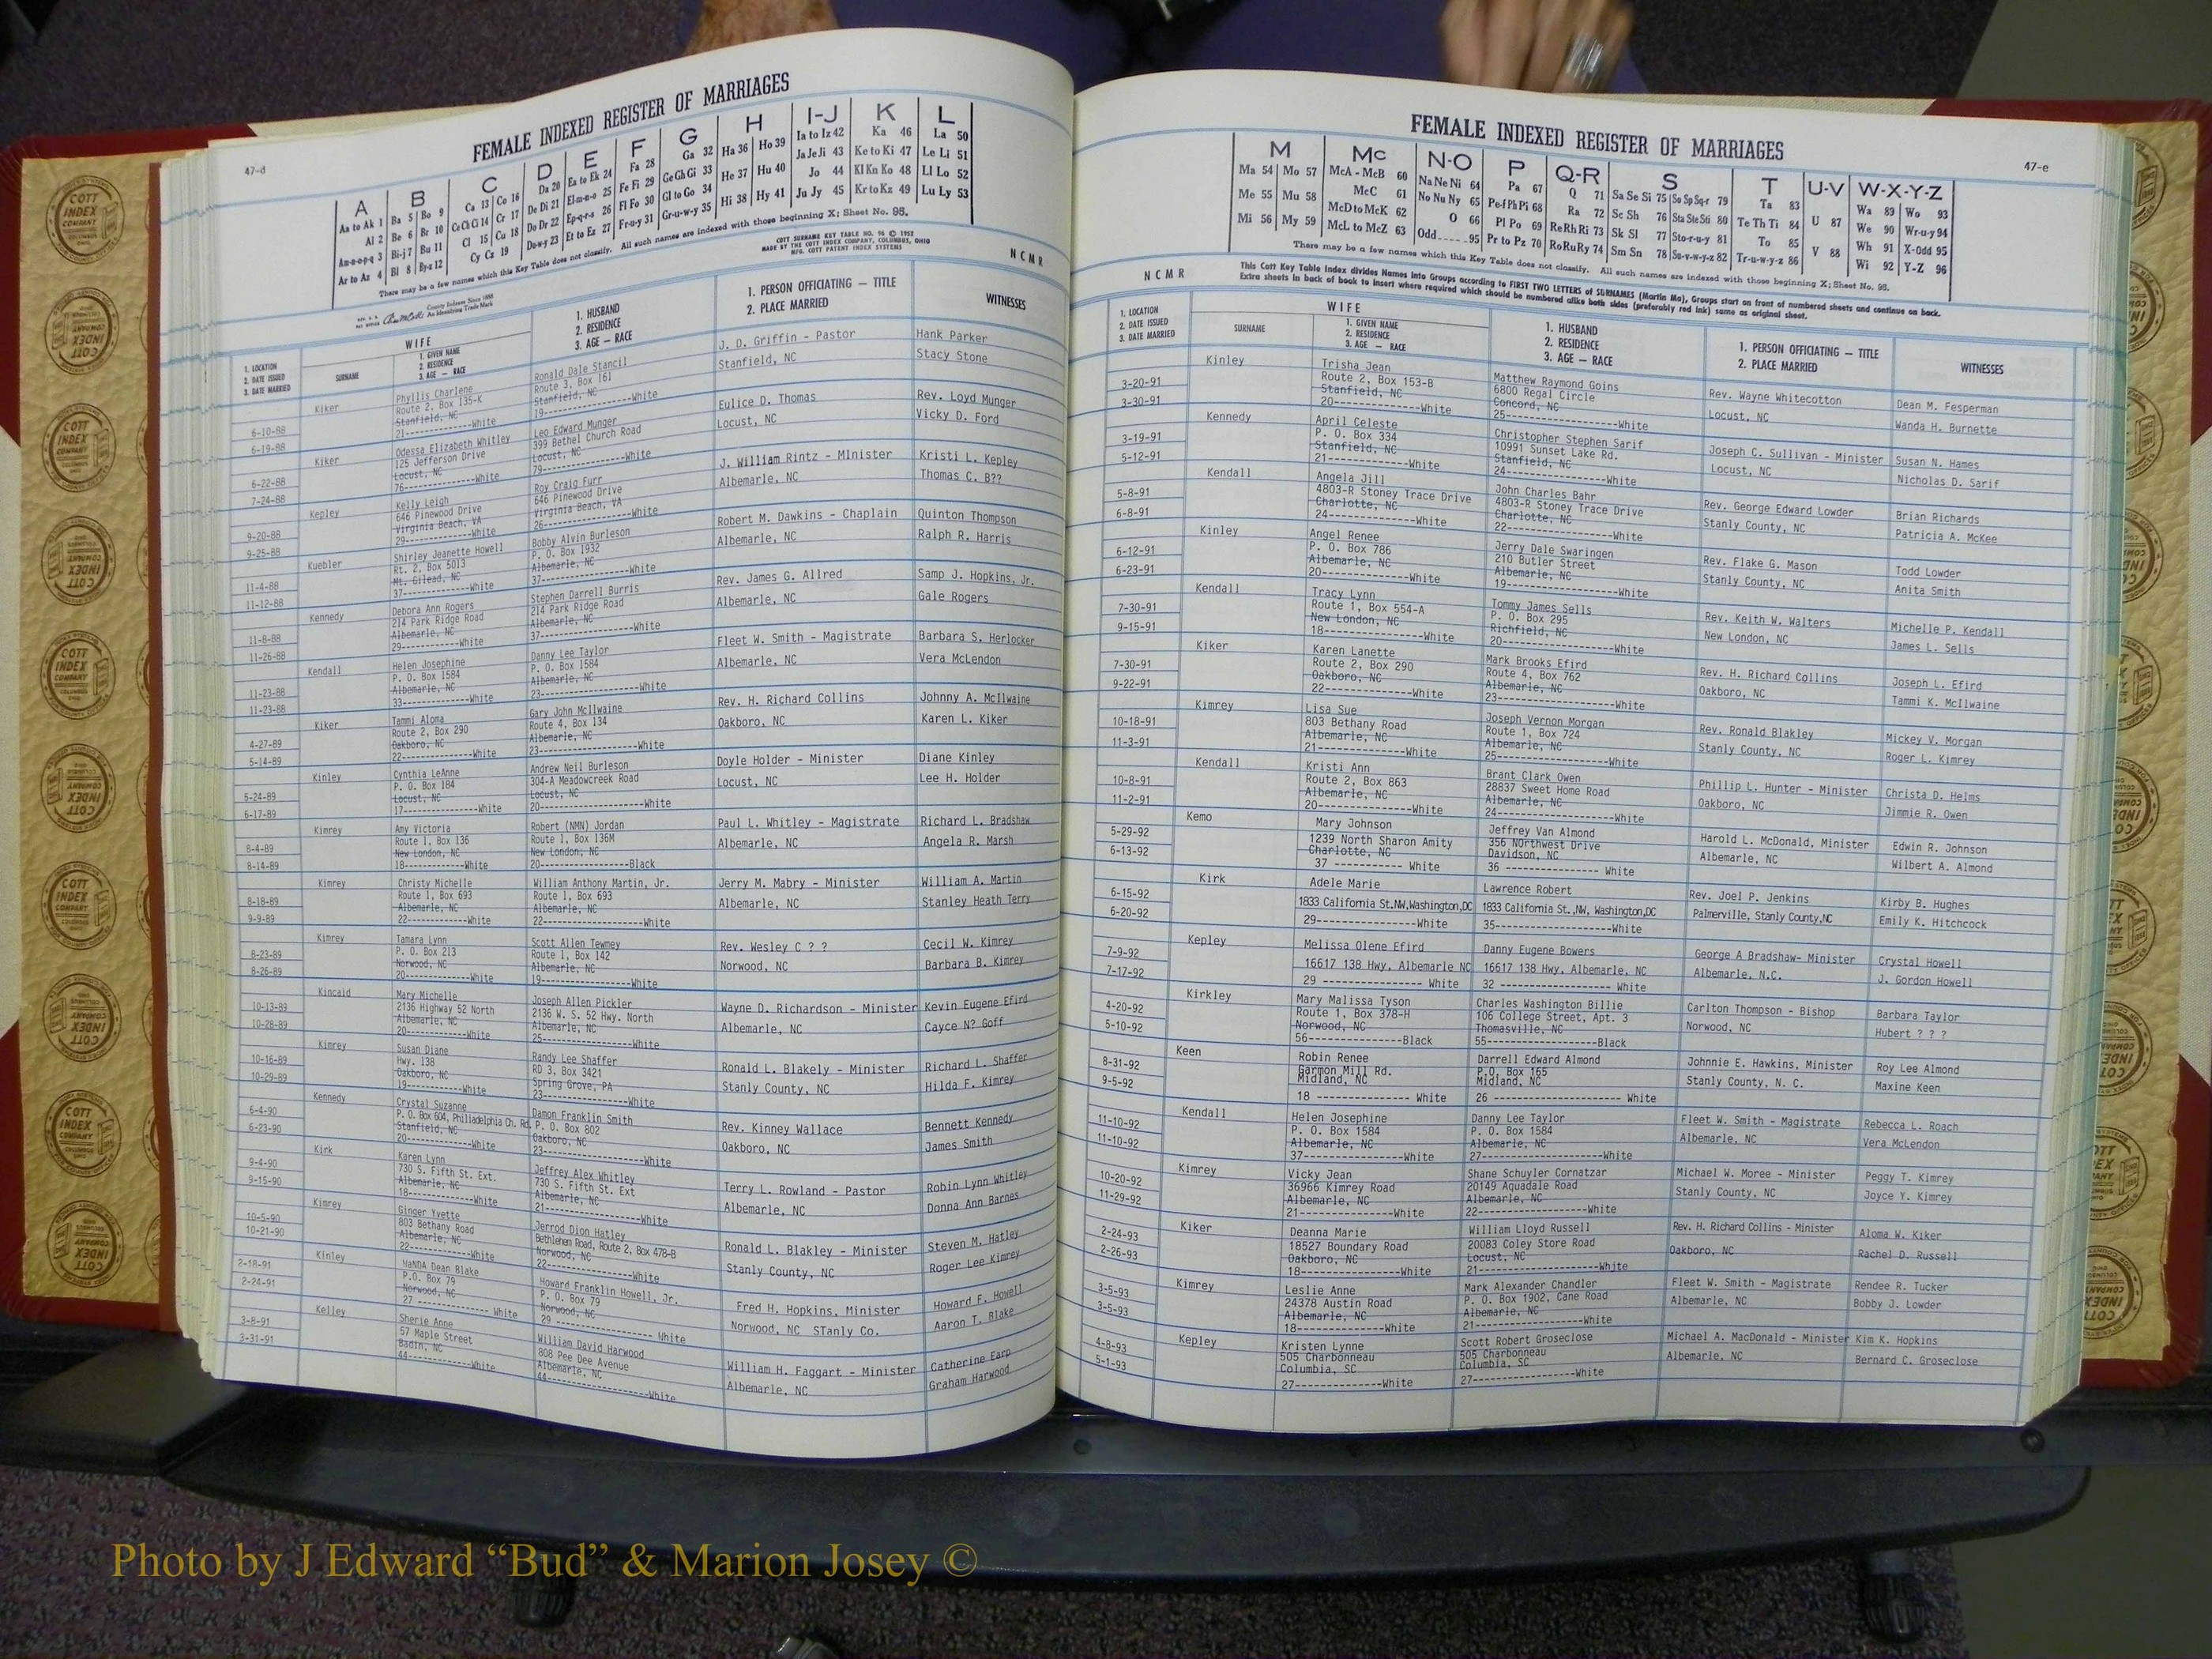 FEMALE INDEXED REGISTER OF MARRIAGES
47-d
A B C D E F G H I-J K L
Aa to Ak 1 Ba 5 Bo 9 Ca 13 Co 16 Da 20 Ea to Ek 24 Fa 28 Ga 32 Ha 36 Ho 39 Ia to Iz 42 Ka 46 La 50
Al 2 Be 6 Br 10 Ce Ch Ci 14 Cr 17 De Di 21 El-m-n-o 25 Fe Fi 29 Ge Gh Gi 33 He 37 Hu 40 Ja Je Ji 43 Ke to Ki 47 Le Li 51
Am-n-o-p-q 3 Bi-j 7 Bu 11 Cl 15 Cu 18 Do Dr 22 Ep-q-r-s 26 Fl Fo 30 Gl to Go 34 Hi 38 Hy 41 Jo 44 Kl Kn Ko 48 Ll Lo 52
Ar to Az 4 Bl 8 By-z 12 Cy Cz 19 Du-w-y 23 Et to Ez 27 Fr-u-y 31 Gr-u-w-y 35 Ju Jy 45 Kr to Kz 49 Lu Ly 53
There may be a few names which this Key Table does not classify. All such names are indexed with those beginning X; Sheet No. 95.
COTT SURNAME KEY TABLE NO. 96 © 1952
MADE BY THE COTT INDEX COMPANY, COLUMBUS, OHIO
MFG. COTT PATENT INDEX SYSTEMS
County Indexes Since 1888
An Identifying Trade Mark
NCMR
1. LOCATION
2. DATE ISSUED
3. DATE MARRIED
WIFE
SURNAME
1. GIVEN NAME
2. RESIDENCE
3. AGE — RACE
1. HUSBAND
2. RESIDENCE
3. AGE — RACE
1. PERSON OFFICIATING — TITLE
2. PLACE MARRIED
WITNESSES
Kiker Phyllis Charlene Ronald Dale Stancil J. D. Griffin - Pastor Hank Parker
Route 2, Box 135-K Route 3, Box 161 Stanfield, NC Stacy Stone
6-10-88 Stanfield, NC Stanfield, NC
6-19-88 21------------White 19------------White
Kiker Odessa Elizabeth Whitley Leo Edward Munger Eulice D. Thomas Rev. Loyd Munger
125 Jefferson Drive 399 Bethel Church Road Locust, NC Vicky D. Ford
6-22-88 Locust, NC Locust, NC
7-24-88 76------------White 79------------White
Kepley Kelly Leigh Roy Craig Furr J. William Rintz - MInister Kristi L. Kepley
646 Pinewood Drive 646 Pinewood Drive Albemarle, NC Thomas C. B??
9-20-88 Virginia Beach, VA Virginia Beach, VA
9-25-88 29------------White 26------------White
Kuebler Shirley Jeanette Howell Bobby Alvin Burleson Robert M. Dawkins - Chaplain Quinton Thompson
Rt. 2, Box 5013 P. O. Box 1932 Albemarle, NC Ralph R. Harris
11-4-88 Mt. Gilead, NC Albemarle, NC
11-12-88 37------------White 37------------White
Kennedy Debora Ann Rogers Stephen Darrell Burris Rev. James G. Allred Samp J. Hopkins, Jr.
214 Park Ridge Road 214 Park Ridge Road Albemarle, NC Gale Rogers
11-8-88 Albemarle, NC Albemarle, NC
11-26-88 29------------White 37------------White
Kendall Helen Josephine Danny Lee Taylor Fleet W. Smith - Magistrate Barbara S. Herlocker
P. O. Box 1584 P. O. Box 1584 Albemarle, NC Vera McLendon
11-23-88 Albemarle, NC Albemarle, NC
11-23-88 33------------White 23------------White
Kiker Tammi Aloma Gary John McIlwaine Rev. H. Richard Collins Johnny A. McIlwaine
Route 2, Box 290 Route 4, Box 134 Oakboro, NC Karen L. Kiker
4-27-89 Oakboro, NC Albemarle, NC
5-14-89 22------------White 23------------White
Kinley Cynthia LeAnne Andrew Neil Burleson Doyle Holder - Minister Diane Kinley
P. O. Box 184 304-A Meadowcreek Road Locust, NC Lee H. Holder
5-24-89 Locust, NC Locust, NC
6-17-89 17------------White 20------------White
Kimrey Amy Victoria Robert (NMN) Jordan Paul L. Whitley - Magistrate Richard L. Bradshaw
Route 1, Box 136 Route 1, Box 136M Albemarle, NC Angela R. Marsh
8-4-89 New London, NC New London, NC
8-14-89 18------------White 20------------Black
Kimrey Christy Michelle William Anthony Martin, Jr. Jerry M. Mabry - Minister William A. Martin
Route 1, Box 693 Route 1, Box 693 Albemarle, NC Stanley Heath Terry
8-18-89 Albemarle, NC Albemarle, NC
9-9-89 22------------White 22------------White
Kimrey Tamara Lynn Scott Allen Tewmey Rev. Wesley C ? ? Cecil W. Kimrey
P. O. Box 213 Route 1, Box 142 Norwood, NC Barbara B. Kimrey
8-23-89 Norwood, NC Albemarle, NC
8-26-89 20------------White 19------------White
Kincaid Mary Michelle Joseph Allen Pickler Wayne D. Richardson - Minister Kevin Eugene Efird
2136 Highway 52 North 2136 W. S. 52 Hwy. North Albemarle, NC Cayce N? Goff
10-13-89 Albemarle, NC Albemarle, NC
10-28-89 20------------White 25------------White
Kimrey Susan Diane Randy Lee Shaffer Ronald L. Blakely - Minister Richard L. Shaffer
Hwy. 138 RD 3, Box 3421 Stanly County, NC Hilda F. Kimrey
10-16-89 Oakboro, NC Spring Grove, PA
10-29-89 19------------White 23------------White
Kennedy Crystal Suzanne Damon Franklin Smith Rev. Kinney Wallace Bennett Kennedy
P. O. Box 604, Philiadelphia Ch. Rd. P. O. Box 802 Oakboro, NC James Smith
6-4-90 Stanfield, NC Oakboro, NC
6-23-90 20------------White 23------------White
Kirk Karen Lynn Jeffrey Alex Whitley Terry L. Rowland - Pastor Robin Lynn Whitley
730 S. Fifth St. Ext. 730 S. Fifth St. Ext Albemarle, NC Donna Ann Barnes
9-4-90 Albemarle, NC Albemarle, NC
9-15-90 18------------White 21------------White
Kimrey Ginger Yvette Jerrod Dion Hatley Ronald L. Blakley - Minister Steven M. Hatley
803 Bethany Road Bethlehem Road, Route 2, Box 478-B Stanly County, NC Roger Lee Kimrey
10-5-90 Albemarle, NC Norwood, NC
10-21-90 22------------White 22------------White
Kinley WaNDA Dean Blake Howard Franklin Howell, Jr. Fred H. Hopkins, Minister Howard F. Howell
2-18-91 P.O. Box 79 P. O. Box 79 Norwood, NC STanly Co. Aaron T. Blake
2-24-91 Norwood, NC Norwood, NC
27 ------------ White 29 ------------ White
Kelley Sherie Anne William David Harwood William H. Faggart - Minister Catherine Earp
3-8-91 57 Maple Street 808 Pee Dee Avenue Albemarle, NC Graham Harwood
3-31-91 Badin, NC Albemarle, NC
44------------White 44------------White
FEMALE INDEXED REGISTER OF MARRIAGES
47-e
M Mc N-O P Q-R S T U-V W-X-Y-Z
Ma 54 Mo 57 McA - McB 60 Na Ne Ni 64 Pa 67 Q 71 Sa Se Si 75 So Sp Sq-r 79 Ta 83 U 87 Wa 89 Wo 93
Me 55 Mu 58 McC 61 No Nu Ny 65 Pe-f Ph Pi 68 Ra 72 Sc Sh 76 Sta Ste Sti 80 Te Th Ti 84 V 88 We 90 Wr-u-y 94
Mi 56 My 59 McD to McK 62 O 66 Pl Po 69 Re Rh Ri 73 Sk Sl 77 Sto-r-u-y 81 To 85 Wh 91 X-Odd 95
McL to McZ 63 Odd 95 Pr to Pz 70 Ro Ru Ry 74 Sm Sn 78 Su-v-w-y-z 82 Tr-u-w-y-z 86 Wi 92 Y-Z 96
There may be a few names which this Key Table does not classify. All such names are indexed with those beginning X; Sheet No. 95.
NCMR
This Cott Key Table Index divides Names into Groups according to FIRST TWO LETTERS of SURNAMES (Martin Ma), Groups start on front of numbered sheets and continue on back.
Extra sheets in back of book to insert where required which should be numbered alike both sides (preferably red ink) same as original sheet.
1. LOCATION
2. DATE ISSUED
3. DATE MARRIED
WIFE
SURNAME
1. GIVEN NAME
2. RESIDENCE
3. AGE — RACE
1. HUSBAND
2. RESIDENCE
3. AGE — RACE
1. PERSON OFFICIATING — TITLE
2. PLACE MARRIED
WITNESSES
Kinley Trisha Jean Matthew Raymond Goins Rev. Wayne Whitecotton Dean M. Fesperman
3-20-91 Route 2, Box 153-B 6800 Regal Circle Locust, NC Wanda H. Burnette
3-30-91 Stanfield, NC Concord, NC
20------------White 25------------White
Kennedy April Celeste Christopher Stephen Sarif Joseph C. Sullivan - Minister Susan N. Hames
3-19-91 P. O. Box 334 10991 Sunset Lake Rd. Locust, NC Nicholas D. Sarif
5-12-91 Stanfield, NC Stanfield, NC
21------------White 24------------White
Kendall Angela Jill John Charles Bahr Rev. George Edward Lowder Brian Richards
5-8-91 4803-R Stoney Trace Drive 4803-R Stoney Trace Drive Stanly County, NC Patricia A. McKee
6-8-91 Charlotte, NC Charlotte, NC
24------------White 22------------White
Kinley Angel Renee Jerry Dale Swaringen Rev. Flake G. Mason Todd Lowder
6-12-91 P. O. Box 786 210 Butler Street Stanly County, NC Anita Smith
6-23-91 Albemarle, NC Albemarle, NC
20------------White 19------------White
Kendall Tracy Lynn Tommy James Sells Rev. Keith W. Walters Michelle P. Kendall
7-30-91 Route 1, Box 554-A P. O. Box 295 New London, NC James L. Sells
9-15-91 New London, NC Richfield, NC
18------------White 20------------White
Kiker Karen Lanette Mark Brooks Efird Rev. H. Richard Collins Joseph L. Efird
7-30-91 Route 2, Box 290 Route 4, Box 762 Oakboro, NC Tammi K. McIlwaine
9-22-91 Oakboro, NC Albemarle, NC
22------------White 23------------White
Kimrey Lisa Sue Joseph Vernon Morgan Rev. Ronald Blakley Mickey V. Morgan
10-18-91 803 Bethany Road Route 1, Box 724 Stanly County, NC Roger L. Kimrey
11-3-91 Albemarle, NC Albemarle, NC
21------------White 25------------White
Kendall Kristi Ann Brant Clark Owen Phillip L. Hunter - Minister Christa D. Helms
10-8-91 Route 2, Box 863 28837 Sweet Home Road Oakboro, NC Jimmie R. Owen
11-2-91 Albemarle, NC Albemarle, NC
20------------White 24------------White
Kemo Mary Johnson Jeffrey Van Almond Harold L. McDonald, Minister Edwin R. Johnson
5-29-92 1239 North Sharon Amity 356 NOrthwest Drive Albemarle, NC Wilbert A. Almond
6-13-92 Charlotte, NC Davidson, NC
37 ------------ White 36 ------------ White
Kirk Adele Marie Lawrence Robert Rev. Joel P. Jenkins Kirby B. Hughes
6-15-92 1833 California St.NW,Washington,DC 1833 California St.,NW, Washington,DC Palmerville, Stanly County,NC Emily K. Hitchcock
6-20-92 29------------White 35------------White
Kepley Melissa Olene Efird Danny Eugene Bowers George A Bradshaw- Minister Crystal Howell
7-9-92 16617 138 Hwy, Albemarle NC 16617 138 Hwy, Albemarle, NC Albemarle, N.C. J. Gordon Howell
7-17-92 29 ------------ White 32 ------------ White
Kirkley Mary Malissa Tyson Charles Washington Billie Carlton Thompson - Bishop Barbara Taylor
4-20-92 Route 1, Box 378-H 106 College Street, Apt. 3 Norwood, NC Hubert ? ? ?
5-10-92 Norwood, NC Thomasville, NC
56------------Black 55------------Black
Keen Robin Renee Darrell Edward Almond Johnnie E. Hawkins, Minister Roy Lee Almond
8-31-92 Garmon Mill Rd. P.O. Box 165 Stanly County, N. C. Maxine Keen
9-5-92 Midland, NC Midland, NC
18 ------------ White 26 ------------ White
Kendall Helen Josephine Danny Lee Taylor Fleet W. Smith - Magistrate Rebecca L. Roach
11-10-92 P. O. Box 1584 P. O. Box 1584 Albemarle, NC Vera McLendon
11-10-92 Albemarle, NC Albemarle, NC
37------------White 27------------White
Kimrey Vicky Jean Shane Schuyler Cornatzar Michael W. Moree - Minister Peggy T. Kimrey
10-20-92 36966 Kimrey Road 20149 Aquadale Road Stanly County, NC Joyce Y. Kimrey
11-29-92 Albemarle, NC Albemarle, NC
21------------White 22------------White
Kiker Deanna Marie William Lloyd Russell Rev. H. Richard Collins - Minister Aloma W. Kiker
2-24-93 18527 Boundary Road 20083 Coley Store Road Oakboro, NC Rachel D. Russell
2-26-93 Oakboro, NC Locust, NC
18------------White 21------------White
Kimrey Leslie Anne Mark Alexander Chandler Fleet W. Smith - Magistrate Rendee R. Tucker
3-5-93 24378 Austin Road P. O. Box 1902, Cane Road Albemarle, NC Bobby J. Lowder
3-5-93 Albemarle, NC Albemarle, NC
18------------White 21------------White
Kepley Kristen Lynne Scott Robert Groseclose Michael A. MacDonald - Minister Kim K. Hopkins
4-8-93 505 Charbonneau 505 Charbonneau Albemarle, NC Bernard C. Groseclose
5-1-93 Columbia, SC Columbia, SC
27------------White 27------------White
Photo by J Edward “Bud” & Marion Josey ©